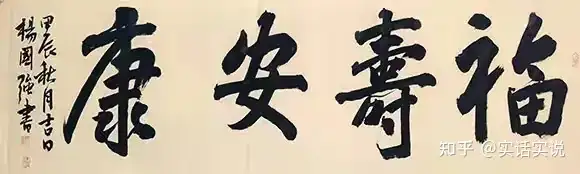 福壽安康
甲辰秋月吉日
楊國強書
知乎 @实话实说